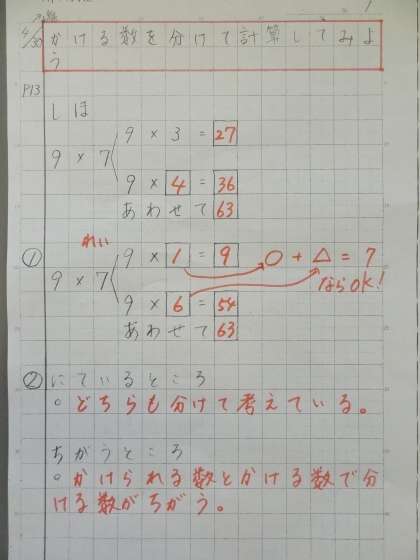 4/30 かける数を分けて計算してみよ
う
P13
しほ
9 × 3 = 27
9 × 7
9 × 4 = 36
あわせて 63
れい
① 9 × 1 = 9 ○ + △ = 7
9 × 7 ならOK!
9 × 6 = 54
あわせて 63
② にているところ
○ どちらも分けて考えている。
ちがうところ
○ かけられる数とかける数で分
ける数がちがう。